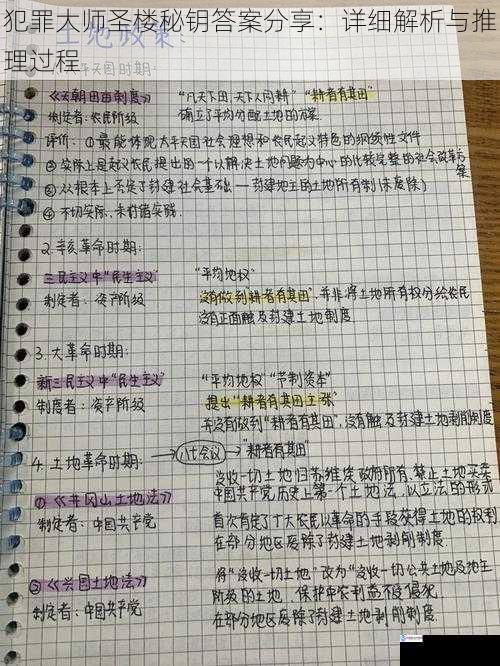 犯罪大师圣楼秘钥答案分享：详细解析与推
理过程
土地政策
太平天国时期：
《天朝田亩制度》 "凡天下田，天下人同耕" "耕者有其田"
制定者：农民阶级 确立了平均分配土地的方案
评价：①最能体现太平天国社会理想和农民起义特色的纲领性文件
②实际上是起义农民提出的一个以解决土地问题为中心的比较完整的社会改革方
案
③从根本上否定了封建社会基础——封建地主的土地所有制（未废除）
④不切实际，未付诸实践.
2.辛亥革命时期：
三民主义中"民生主义" "平均地权"
制定者：资产阶级 没有做到"耕者有其田"，并非将土地所有权分给农民
没有正面触及封建土地制度
3.大革命时期：
新三民主义中"民生主义" "平均地权""节制资本"
制度者：资产阶级 提出"耕者有其田主张"
并没有做到"耕者有其田"，没有触及封建土地剥削制度
4.土地革命时期：→八七会议→"耕者有其田"
没收一切土地归苏维埃政府所有，禁止土地买卖
①《井冈山土地法》 中国共产党历史上第一个土地法，以立法的形式
制定者：中国共产党 首次肯定了广大农民以革命的手段获得土地的权利
在部分地区废除了封建土地剥削制度
②《兴国土地法》 将"没收一切土地"改为"没收一切公共土地及地主
制定者：中国共产党 阶级的土地，保护中农利益不受侵犯
在部分地区废除了封建土地剥削制度.